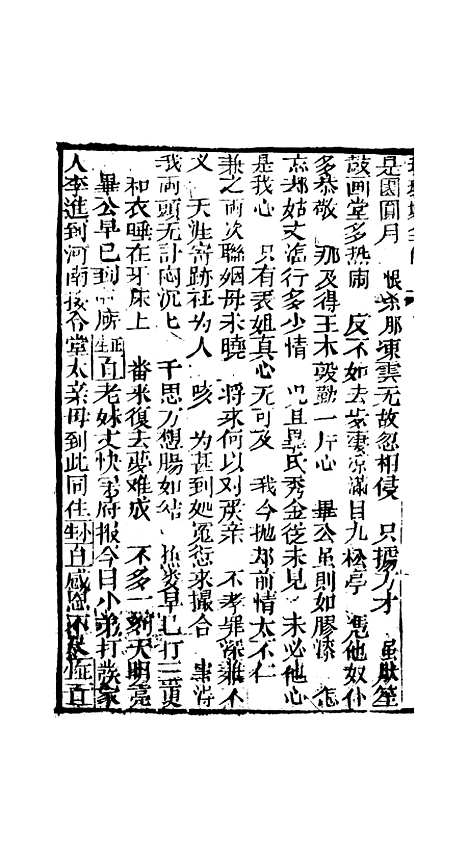 是团圓月 恨杀那凍雲无故忽相侵 只據刀才 虽默笙
鼓画堂多热闹 反不如去岁凄凉滿目九松亭 凭他奴仆
多恭敬 那及得王本殷勤一片心 畢公虽則如膠漆 怎
忘却姑丈泷行多少情 况且畢氏秀金從未見 未必他心
是我心 只有表姐真心无可及 我今抛却前情太不仁
兼之两次聯姻母未曉 将來何以对慈亲 不孝罪深難不
义 天涯寄跡枉为人 咳 为甚到処冤愆來撮合 累得
我两頭无計闷沉匕 千思万想腸如结 早已打三更
和衣睡在牙床上 番來復去夢难成 不多一刻天明亮
畢公早已到 正生白老妹丈快 府报今日小弟打发家
人李進到河南接令堂太亲母到此同住小生白感恩不尽正白